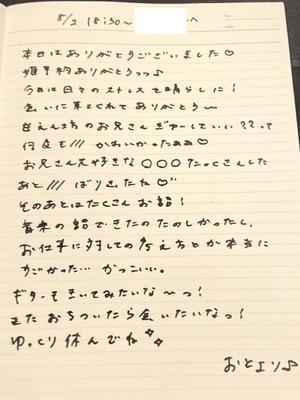 8/2 18:30〜 へ
本日はありがとうございました♡
ありがとうっっ♪
今日は日々のストレスを晴らしに!
会いに来てくれてありがとう〜
甘えん坊のお兄さん ぎゅーしていい??って
何度も/// かわいかったぁぁ♡
お兄さん大好きな○○○たっくさんした
あと/// ばり たね♡
そのあとはたくさんお話!
話できたのたのしかったし、
お仕事に対しての考えとか本当に
すごかった… かっこいい。
ギターもきいてみたいな〜っ!
またおちついたら会いたいなっ!
ゆっくり休んでね
おとエリ♪